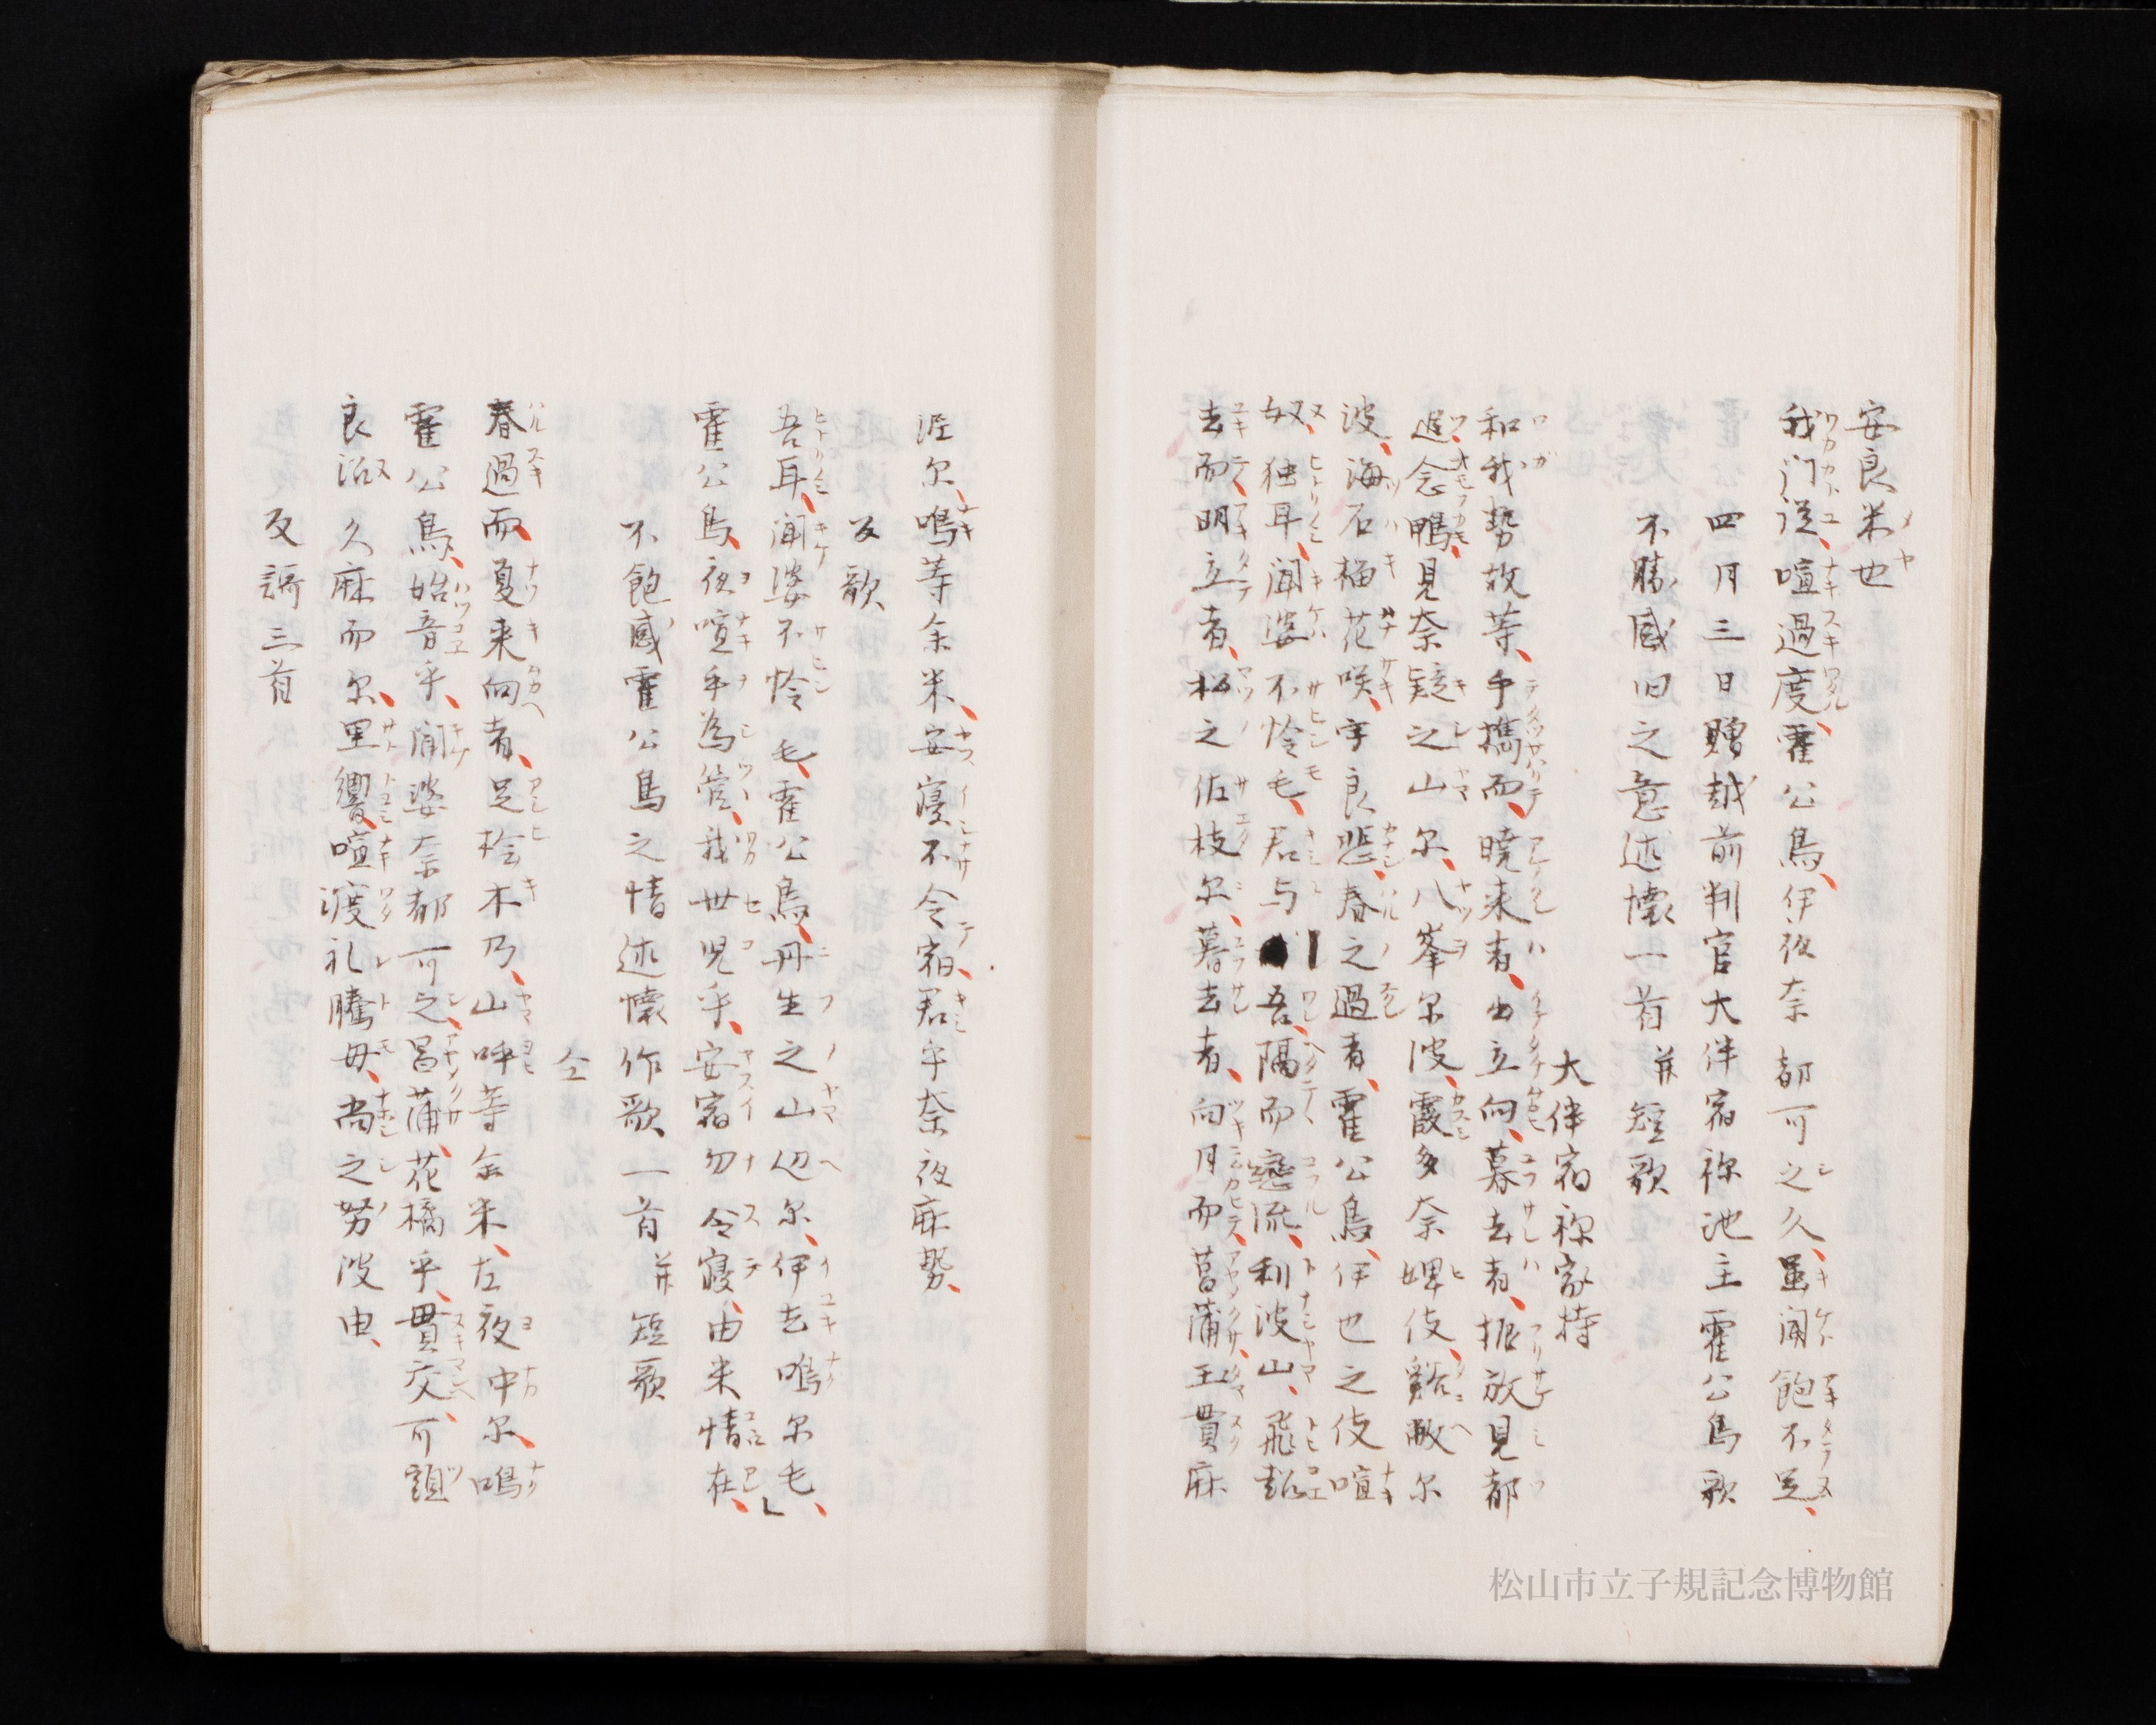 安良米也
我门従喧過度霍公鳥伊夜奈都可之久雖聞飽不足
四月三日贈越前判官大伴宿祢池主霍公鳥歌
不勝感旧之意述懐一首并短歌
大伴宿祢家持
和我勢故等手携而暁来者出立向暮去者振放見都
追念鴨見奈疑之山尓八峯尓波霞多奈婢伎谿敝尓
波海石榴花咲宇良悲春之過者霍公鳥伊也之伎喧
奴独耳聞婆不怜毛君与吾隔而戀流利波山飛超
去而明立者松之佐枝尓暮去者向月而菖蒲玉貫麻
泥尓鳴等余米安寝不令宿君乎奈夜麻勢
反歌
吾耳聞婆不怜毛霍公鳥丹生之山辺尓伊去鳴尓毛
霍公鳥夜喧乎為管我世児乎安宿勿令寝由米情在
不飽感霍公鳥之情述懐作歌一首并短歌
仝
春過而夏来向者足桧木乃山呼等余米左夜中尓鳴
霍公鳥始音乎聞婆奈都可之昌蒲花橘乎貫交可頭
良沼久麻而尓里響喧渡礼騰母尚之努波由
反謌三首
松山市立子規記念博物館